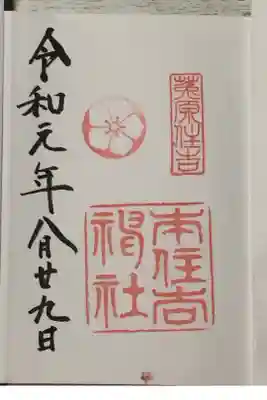 莵原住吉
本住吉
神社
令和元年八月廿九日